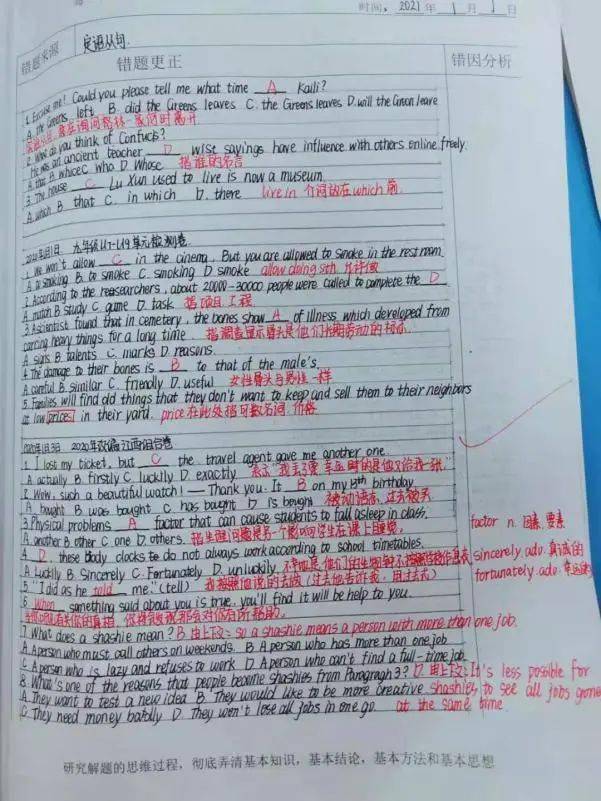 时间: 2021 年 1 月 1 日
错题来源 定语从句. 错题更正 错因分析
1. Excuse me! Could you please tell me what time A Kaili?
A. the Greens left B. did the Greens leaves C. the Greens leaves D. will the Green leave
2. What do you think of Confucs?
He was an ancient teacher D wise sayings have influence with others online freely.
A. that B. whice C. who D. Whose 指谁的名言
3. The house C Lu Xun used to live is now a museum.
A. which B. that C. in which D. there live in 介词放在which前
九年级U7-U9单元检测卷
1. We won't allow C in the cinema, But you are allowed to smoke in the restroom.
A. to smoking B. to smoke C. smoking D. smoke allow doing sth 允许做
2. According to the reasearchers, about 20000-30000 people were called to complete the D
A. match B. study C. game D. task. 指项目工程
3. A scientist found that in cemetery, the bones show A of illness which developed from
carcing heavy things for a long time. 指调查显示骨头是他们长期劳动的
A. signs B. talents C. marks D. reasons.
4. The damage to their bones is B to that of the male's.
A. careful B. similar C. friendly D. useful 女性骨头与男性一样
5. Families will find old things that they don't want to keep and sell them to their neighbors
at low prices in their yard. price在此处指可数名词.价格
1月3日 2020年 江西
1. I lost my ticket, but C the travel agent gave me another one.
A. actually B. firstly C. luckily D. exactly 表示"我丢了票,幸运的是他又给我一张."
2. Wow, such a beautiful watch! — Thank you. It B on my 13th birthday
A. bought B. was bought C. has bought D. is bought 被动语态,过去
3. Physical problems A factor that can cause students to fall asleep in class.
A. another B. other C. one D. others. 指生理问题是另一个影响学生在课上睡觉.
4. D these body clocks to do not always work according to school timetables.
A. Luckily B. Sincerely C. Fortunately D. unluckily.
factor n. 因素.要素
sincerely. adv. 真诚的
fortunately. adv. 幸运的
5. "I did as he told me." (tell)
6. When something said about you is true, you'll find it will be help to you.
7. What does a shashie mean? B 由上下文: so a shashie means a person with more than one job.
A. A person who must call others on weekends. B. A person who has more than one job
C. A person who is lazy and refuses to work D. A person who can't find a full-time job
8. What's one of the reasons that people become shashies from Paragraph 3? D 由上下文: It's less possible for
A. They want to test a new idea B. They would like to be more creative shashies to see all jobs gone
C. They need money badly D. They won't lose all jobs in one go at the same time.
研究解题的思维过程，彻底弄清基本知识，基本结论，基本方法和基本思想